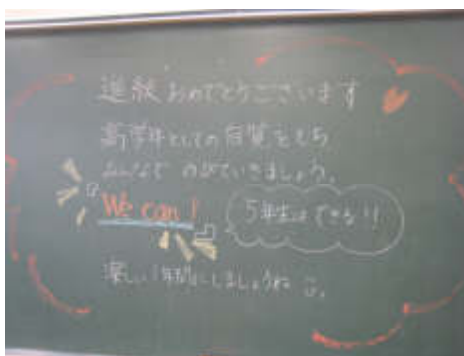 進級おめでとうございます
高学年としての自覚をもち
みんなで のびていきましょう。
We can!
5年生はできる!!
楽しい1年間にしましょうね